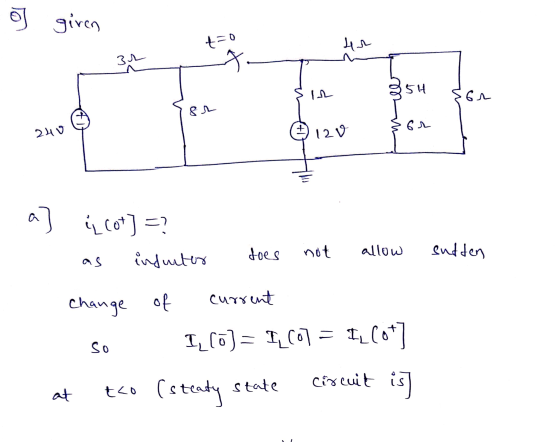 0] given
t=0
3Ω
4Ω
8Ω
1Ω
5H
6Ω
24V
12V
6Ω
a] iL(0⁺] =?
as inductor does not allow sudden
change of current
so IL[0⁻] = IL[0] = IL[0⁺]
at t<0 (steady state circuit is]